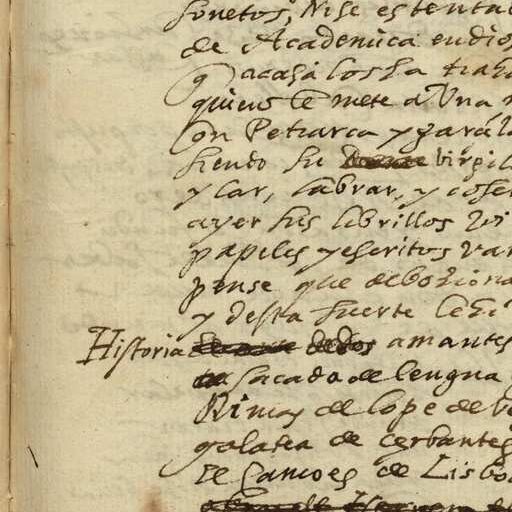 sonetos, Ni se es tenta
de Academica en dios
q acasa los ha trah
quien se mete a Una
on Petrarca y gará l
siendo su Virgil
y lar, labrar, y coser
ayer sus librillos Vi
papeles y escritos var
pense que deboziona
y desta suerte le hi
Historia de dos amantes
sacado de lengua
Rimas de lope de ve
galatea de cerbantes
el Camoes de Lisbo